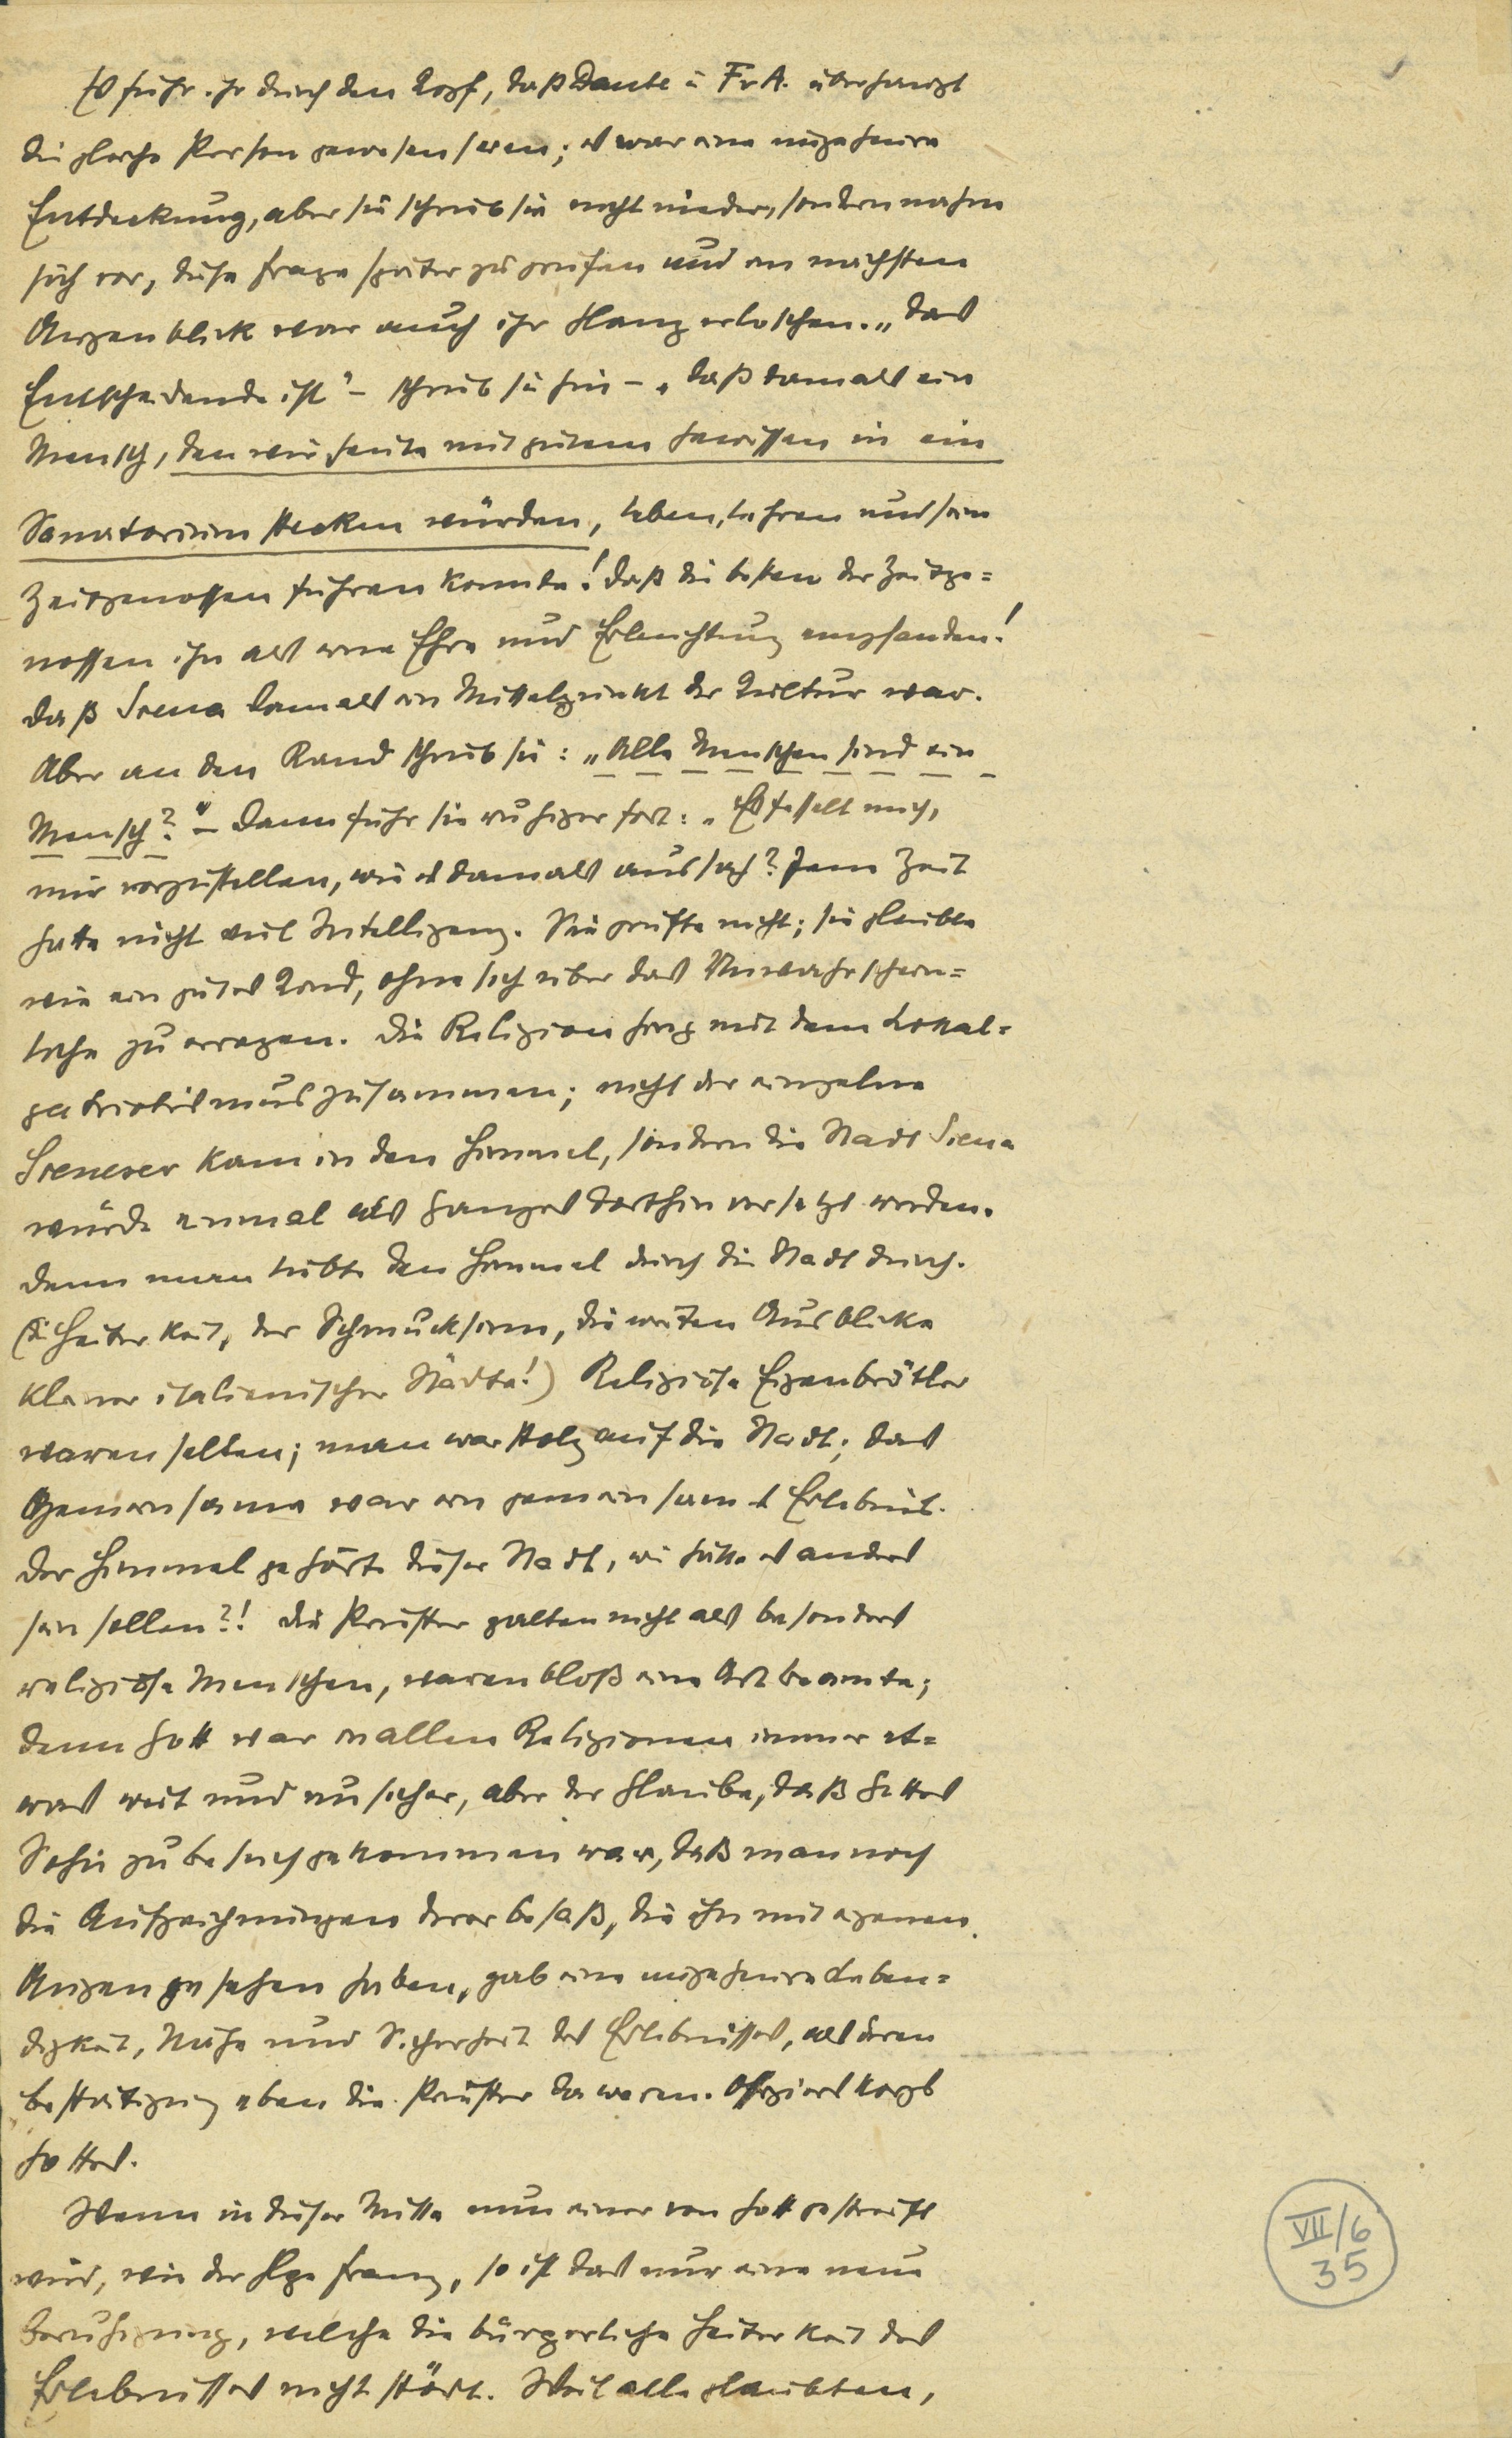 Es fuhr ihr durch den Kopf, daß Dante u Fr A. überhaupt
die gleiche Person gewesen seien; es war eine ungeheure
Entdeckung, aber sie schrieb sie nicht nieder, sondern nahm
sich vor, diese Frage später zu prüfen und im nächsten
Augenblick war auch ihr Glanz erloschen. „Das
Entscheidende ist" – schrieb sie hin – „daß damals ein
Mensch, den wir heute mit gutem Gewissen in ein
Sanatorium stecken würden, leben, lehren und sein
Zeitgenossen führen konnte! Daß die besten der Zeitge=
nossen ihn als eine Ehre und Erleuchtung empfanden!
Daß Siena damals ein Mittelpunkt der Kultur war.
Aber an den Rand schrieb sie: „Alle Menschen sind ein
Mensch?" – Dann fuhr sie ruhiger fort: „Es fesselt mich,
mir vorzustellen, wie es damals aussah? Jene Zeit
hatte nicht viel Intelligenz. Sie prüfte nicht; sie glaubte
wie ein gutes Kind, ohne sich über das Unwahrschein=
liche zu erregen. Die Religion hing mit dem Lokal=
patriotismus zusammen; nicht der einzelne
Sieneser kam in den Himmel, sondern die Stadt Siena
würde einmal als Ganzes dorthin versetzt werden.
Denn man liebte den Himmel durch die Stadt durch.
(Die Heiterkeit, der Schmucksinn, die weiten Ausblicke
kleiner italienischer Städte!) Religiöse Eigenbrötler
waren selten; man war stolz auf die Stadt; das
Gemeinsame war ein gemeinsames Erlebnis.
Der Himmel gehörte dieser Stadt, wie hätte es anders
sein sollen?! Die Priester galten nicht als besonders
religiöse Menschen, waren bloß eine Art Beamte;
denn Gott war in allen Religionen immer et=
was weit und unsicher, aber der Glaube, daß Gottes
Sohn zu Besuch gekommen war, daß man noch
die Aufzeichnungen derer besaß, die ihn mit eigenen
Augen gesehen haben, gab eine ungeheure Leben=
digkeit, Nähe und Sicherheit des Erlebnisses, als deren
Bestätigung eben die Priester da waren. Offizierskorps
Gottes.
Wenn in dieser Mitte nun einer von Gott gestreift
wird, wie der hlge Franz, so ist das nur eine neue
Beruhigung, welche die bürgerliche Heiterkeit des
Erlebnisses nicht stört. Weil alle glaubten,
VII/6
35